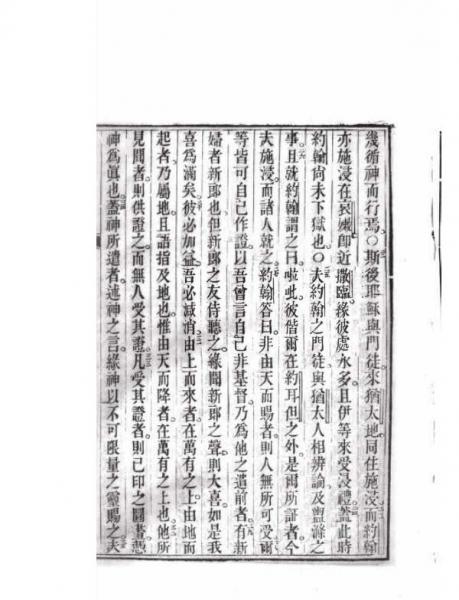 幾循神而行焉。○斯後耶穌與門徒來猶太地。同住施浸。而約翰
亦施浸在哀嫩即近撒臨。緣彼處水多。且伊等來受浸禮。蓋此時
約翰尚未下獄也。○夫約翰之門徒與猶太人相辨論及盥滌之
事。且就約翰謂之曰。啦吡彼偕爾在約耳但之外。是爾所証者。今
夫施浸而諸人就之。約翰答曰。非由天而賜者。則人無所可受。爾
等皆可自己作證。以吾曾言自己非基督乃為他之遣前者。有新
婦者新郎也。但新郎之友侍聽之。緣聞新郎之聲。則大喜。如是我
喜為滿矣。彼必加益。吾必減消。由上而來者。在萬有之上。由地而
起者。乃屬地。且語指及地也。惟由天而降者。在萬有之上也。他所
見聞者。則供證之。而無人受其證。凡受其證者。則已印之圖書。憑
神為眞也。蓋神所遣者。述神之言。緣神以不可限量之靈賜之。夫